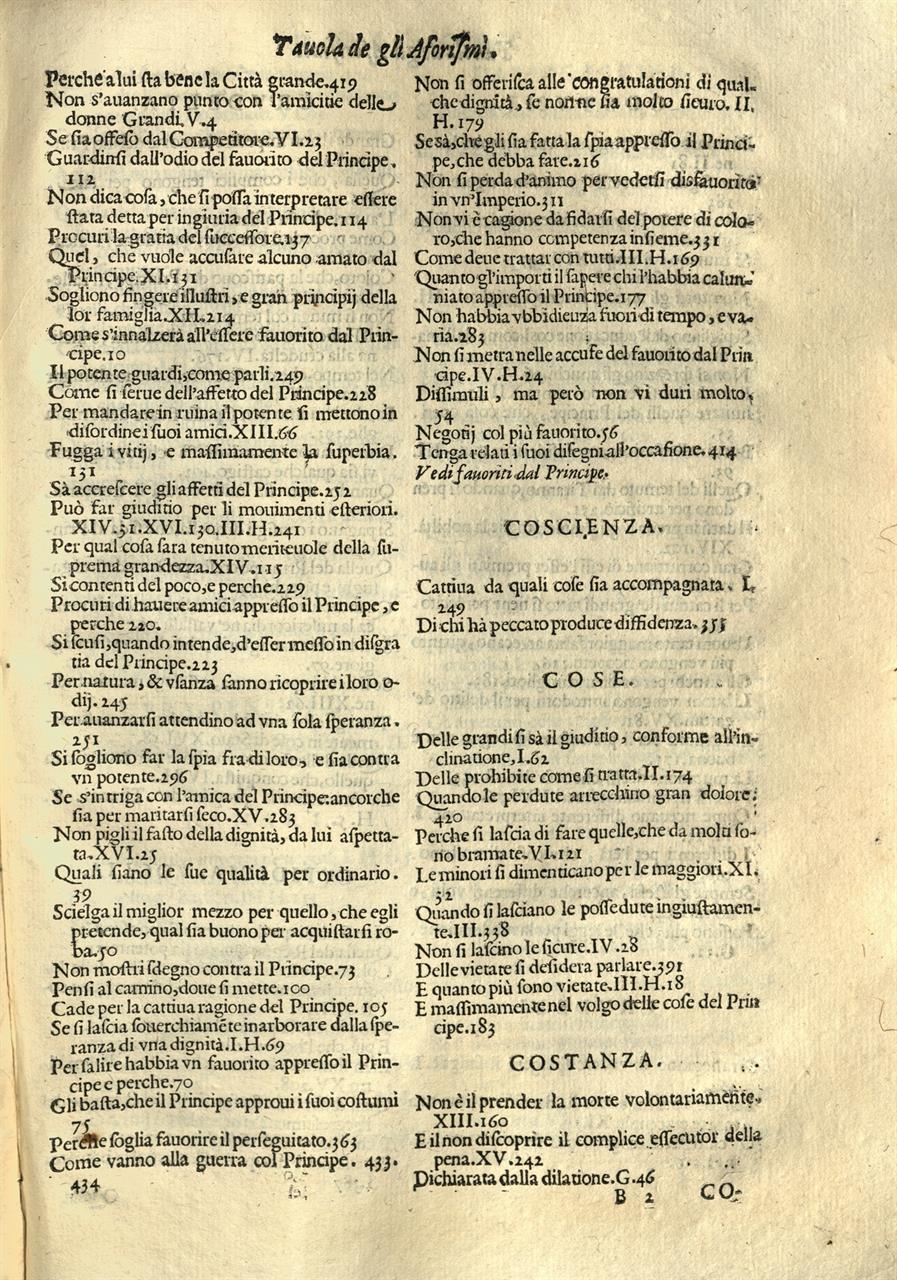 Tauola de gli Aforiſmi.
Perche a lui ſta bene la Città grande.419
Non s'auanzano punto con l'amicitie delle
donne Grandi.V.4
Se ſia offeſo dal Competitore.VI.23
Guardinſi dall'odio del fauorito del Principe.
112
Non dica coſa, che ſi poſſa interpretare eſſere
ſtata detta per ingiuria del Principe.114
Procuri la gratia del ſucceſſore.137
Quel, che vuole accuſare alcuno amato dal
Principe.XI.131
Sogliono fingere illuſtri, e gran principij della
lor famiglia.XII.214
Come s'innalzerà all'eſſere fauorito dal Prin-
cipe.10
Il potente guardi,come parli.249
Come ſi ſerue dell'affetto del Principe.228
Per mandare in ruina il potente ſi mettono in
diſordine i ſuoi amici.XIII.66
Fugga i vitij, e maſſimamente la ſuperbia.
131
Sà accreſcere gli affetti del Principe.252
Può far giuditio per li mouimenti eſteriori.
XIV.31.XVI.130.III.H.241
Per qual coſa ſara tenuto meriteuole della ſu-
prema grandezza.XIV.115
Si contenti del poco,e perche.229
Procuri di hauere amici appreſſo il Principe, e
perche 220.
Si ſcuſi,quando intende,d'eſſer meſſo in diſgra
tia del Principe.223
Per natura, & vſanza ſanno ricoprire i loro o-
dij. 245
Per auanzarſi attendino ad vna ſola ſperanza.
251
Si ſogliono far la ſpia fra di loro, e ſia contra
vn potente.296
Se s'intriga con l'amica del Principe:ancorche
ſia per maritarſi ſeco.XV.283
Non pigli il faſto della dignità, da lui aſpetta-
ta.XVI.25
Quali ſiano le ſue qualità per ordinario.
39
Scielga il miglior mezzo per quello, che egli
pretende, qual ſia buono per acquiſtarſi ro-
ba.50
Non moſtri ſdegno contra il Principe.73
Penſi al camino,doue ſi mette.100
Cade per la cattiua ragione del Principe. 105
Se ſi laſcia ſouerchiamẽte inarborare dalla ſpe-
ranza di vna dignità.I.H.69
Per ſalire habbia vn fauorito appreſſo il Prin-
cipe e perche.70
Gli baſta,che il Principe approui i ſuoi coſtumi
75
Perche ſoglia fauorire il perſeguitato.363
Come vanno alla guerra col Principe. 433.
434
Non ſi offeriſca alle congratulationi di qual-
che dignità, ſe non ne ſia molto ſicuro. II.
H. 179
Se sà,che gli ſia fatta la ſpia appreſſo il Princi-
pe,che debba fare.216
Non ſi perda d'animo per vederſi diſfauorito
in vn'Imperio.311
Non vi è cagione da fidarſi del potere di colo-
ro,che hanno competenza inſieme.331
Come deue trattar con tutti.III.H.169
Quanto gl'importi il ſapere chi l'habbia calun-
niato appreſſo il Principe.177
Non habbia vbbidienza fuori di tempo, e va-
ria.283
Non ſi metra nelle accuſe del fauorito dal Prin
cipe.IV.H.24
Diſſimuli, ma però non vi duri molto.
54
Negotij col più fauorito.56
Tenga celati i ſuoi diſegni all'occaſione.414
Vedi fauoriti dal Principe.
COSCIENZA.
Cattiua da quali coſe ſia accompagnata. I.
249
Di chi hà peccato produce diffidenza.355
COSE.
Delle grandi ſi sà il giuditio, conforme all'in-
clinatione,I.62
Delle prohibite come ſi tratta.II.174
Quando le perdute arrecchino gran dolore.
420
Perche ſi laſcia di fare quelle,che da molti ſo-
no bramate.VI.121
Le minori ſi dimenticano per le maggiori.XI.
32
Quando ſi laſciano le poſſedute ingiuſtamen-
te.III.338
Non ſi laſcino le ſicure.IV.28
Delle vietate ſi deſidera parlare.391
E quanto più ſono vietate.III.H.18
E maſſimamente nel volgo delle coſe del Prin
cipe.183
COSTANZA.
Non è il prender la morte volontariamente.
XIII.160
E il non diſcoprire il complice eſſecutor della
pena.XV.242
Dichiarata dalla dilatione.G.46
B 2 CO-